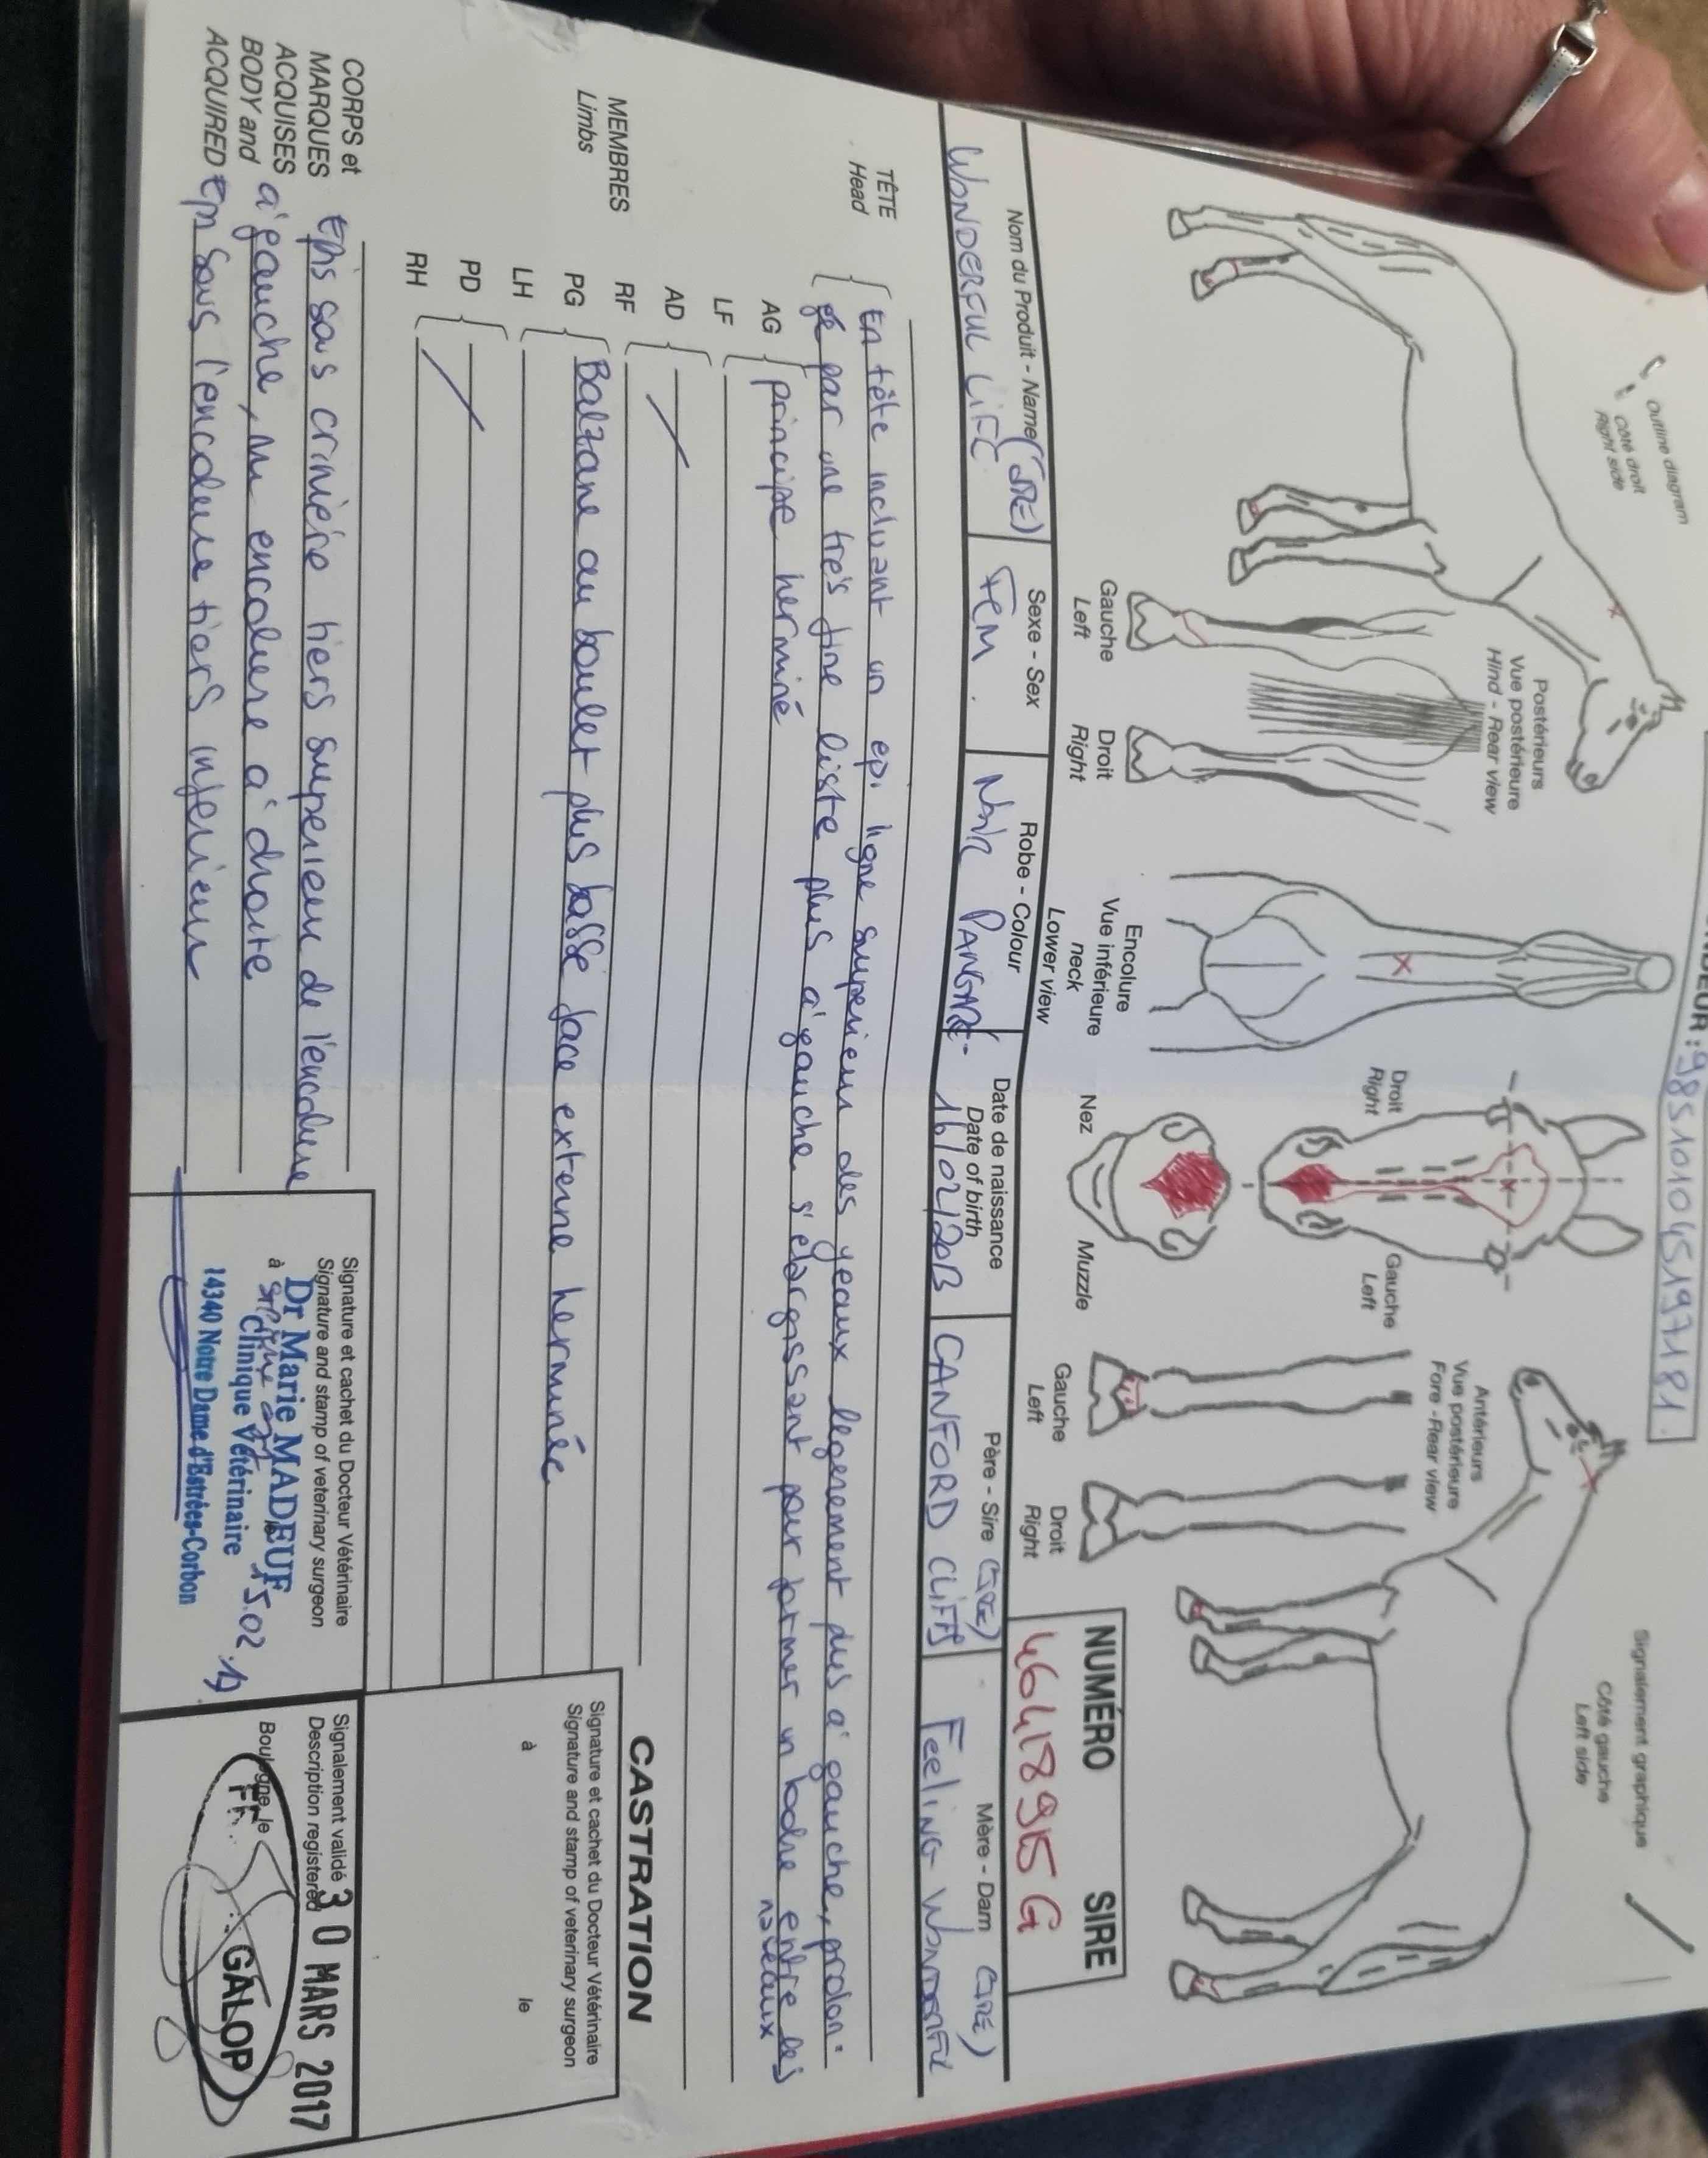 Signalement graphique
Côté gauche
Left side
Outline diagram
Côté droit
Right side
985101045197181
Antérieurs
Vue postérieure
Fore - Rear view
Gauche
Left
Droit
Right
Droit
Right
Gauche
Left
Nez
Muzzle
Encolure
Vue inférieure
Lower view
neck
Postérieurs
Vue postérieure
Hind - Rear view
Gauche
Left
Droit
Right
NUMÉRO SIRE
Nom du Produit - Name (GRE)
WONDERFUL LIFE
Sexe - Sex
FEM.
Robe - Colour
Noir PANGARÉ
Date de naissance
Date of birth
16/02/2013
Père - Sire (GRE)
CANFORD CLIFFS
Mère - Dam (GRE)
FEELING WONDERFUL
TÊTE
Head
En tête incluant un epi ligne superieur des yeaux legerement plus a' gauche, prolon=
gé par une très fine liste plus a' gauche s'élargissant pour former un ladre entre les
naseaux
MEMBRES
Limbs
AG
LF
principe herminé
AD
RF
PG
LH
Balzane au boulet plus basse face externe herminée
PD
RH
CASTRATION
Signature et cachet du Docteur Vétérinaire
Signature and stamp of veterinary surgeon
à
le
CORPS et
MARQUES
ACQUISES
BODY and
ACQUIRED
Epis sous crinière tiers superieur de l'encolure
a' gauche, mi encolure a' droite
Epi sous l'encolure tiers inferieur
Signature et cachet du Docteur Vétérinaire
Signature and stamp of veterinary surgeon
Dr Marie MADEUF
à
le
Clinique Vétérinaire
14340 Notre Dame d'Estrées-Corbon
Signalement validé
Description registered
30 MARS 2017
Boulogne, le
FR.
GALOP